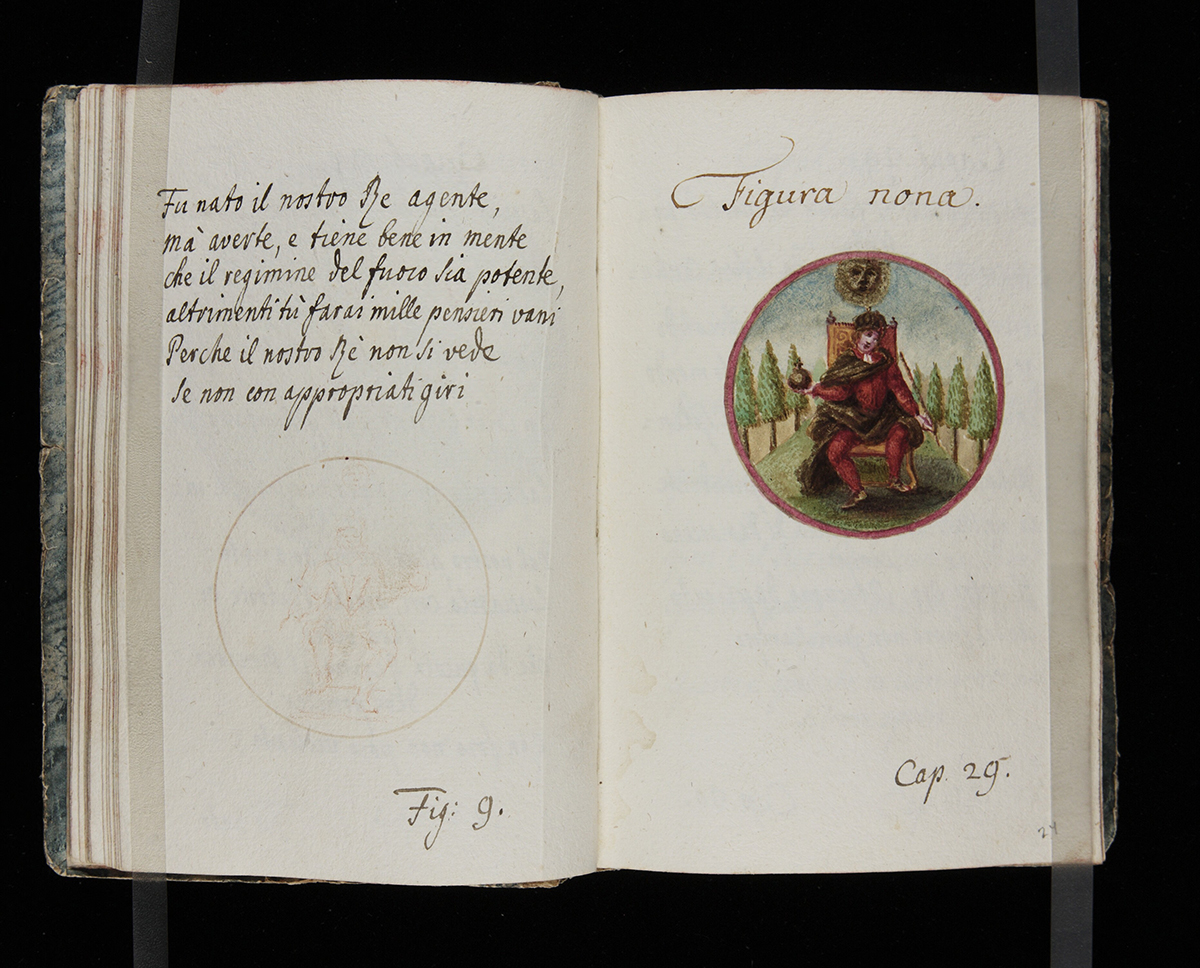 Fu nato il nostro Re agente,
mà averte, e tiene bene in mente
che il regimine del fuoco sia potente,
altrimenti tù farai mille pensieri vani
Perche il nostro Rè non si vede
se non con appropriati giri
Fig: 9.
Figura nona.
Cap. 29.
24